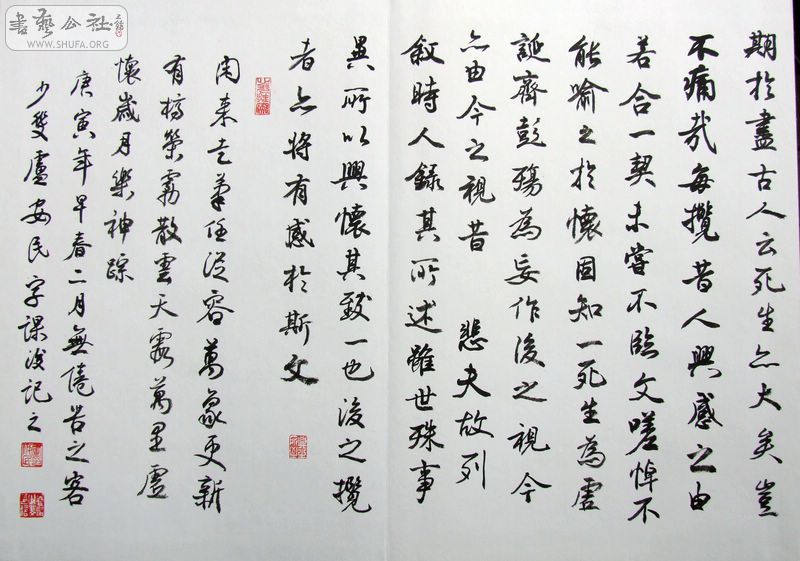 書藝公社
WWW.SHUFA.ORG
期於盡古人云死生亦大矣豈
不痛哉每攬昔人興感之由
若合一契未嘗不臨文嗟悼不
能喻之於懷固知一死生為虛
誕齊彭殤為妄作後之視今
亦由今之視昔 悲夫故列
敘時人錄其所述雖世殊事
異所以興懷其致一也後之攬
者亦將有感於斯文
來走筆任從容萬象更新
有霧散雲天露萬里虛
懷歲月樂神踪
庚寅年早春二月無倦居之客
少雙盧安民字課後記之